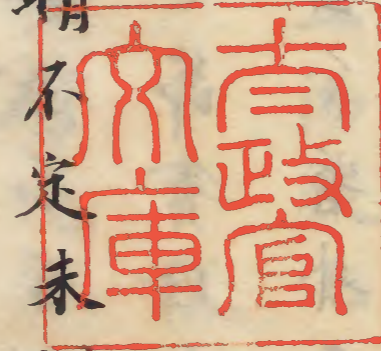 太政官
文庫
不定未